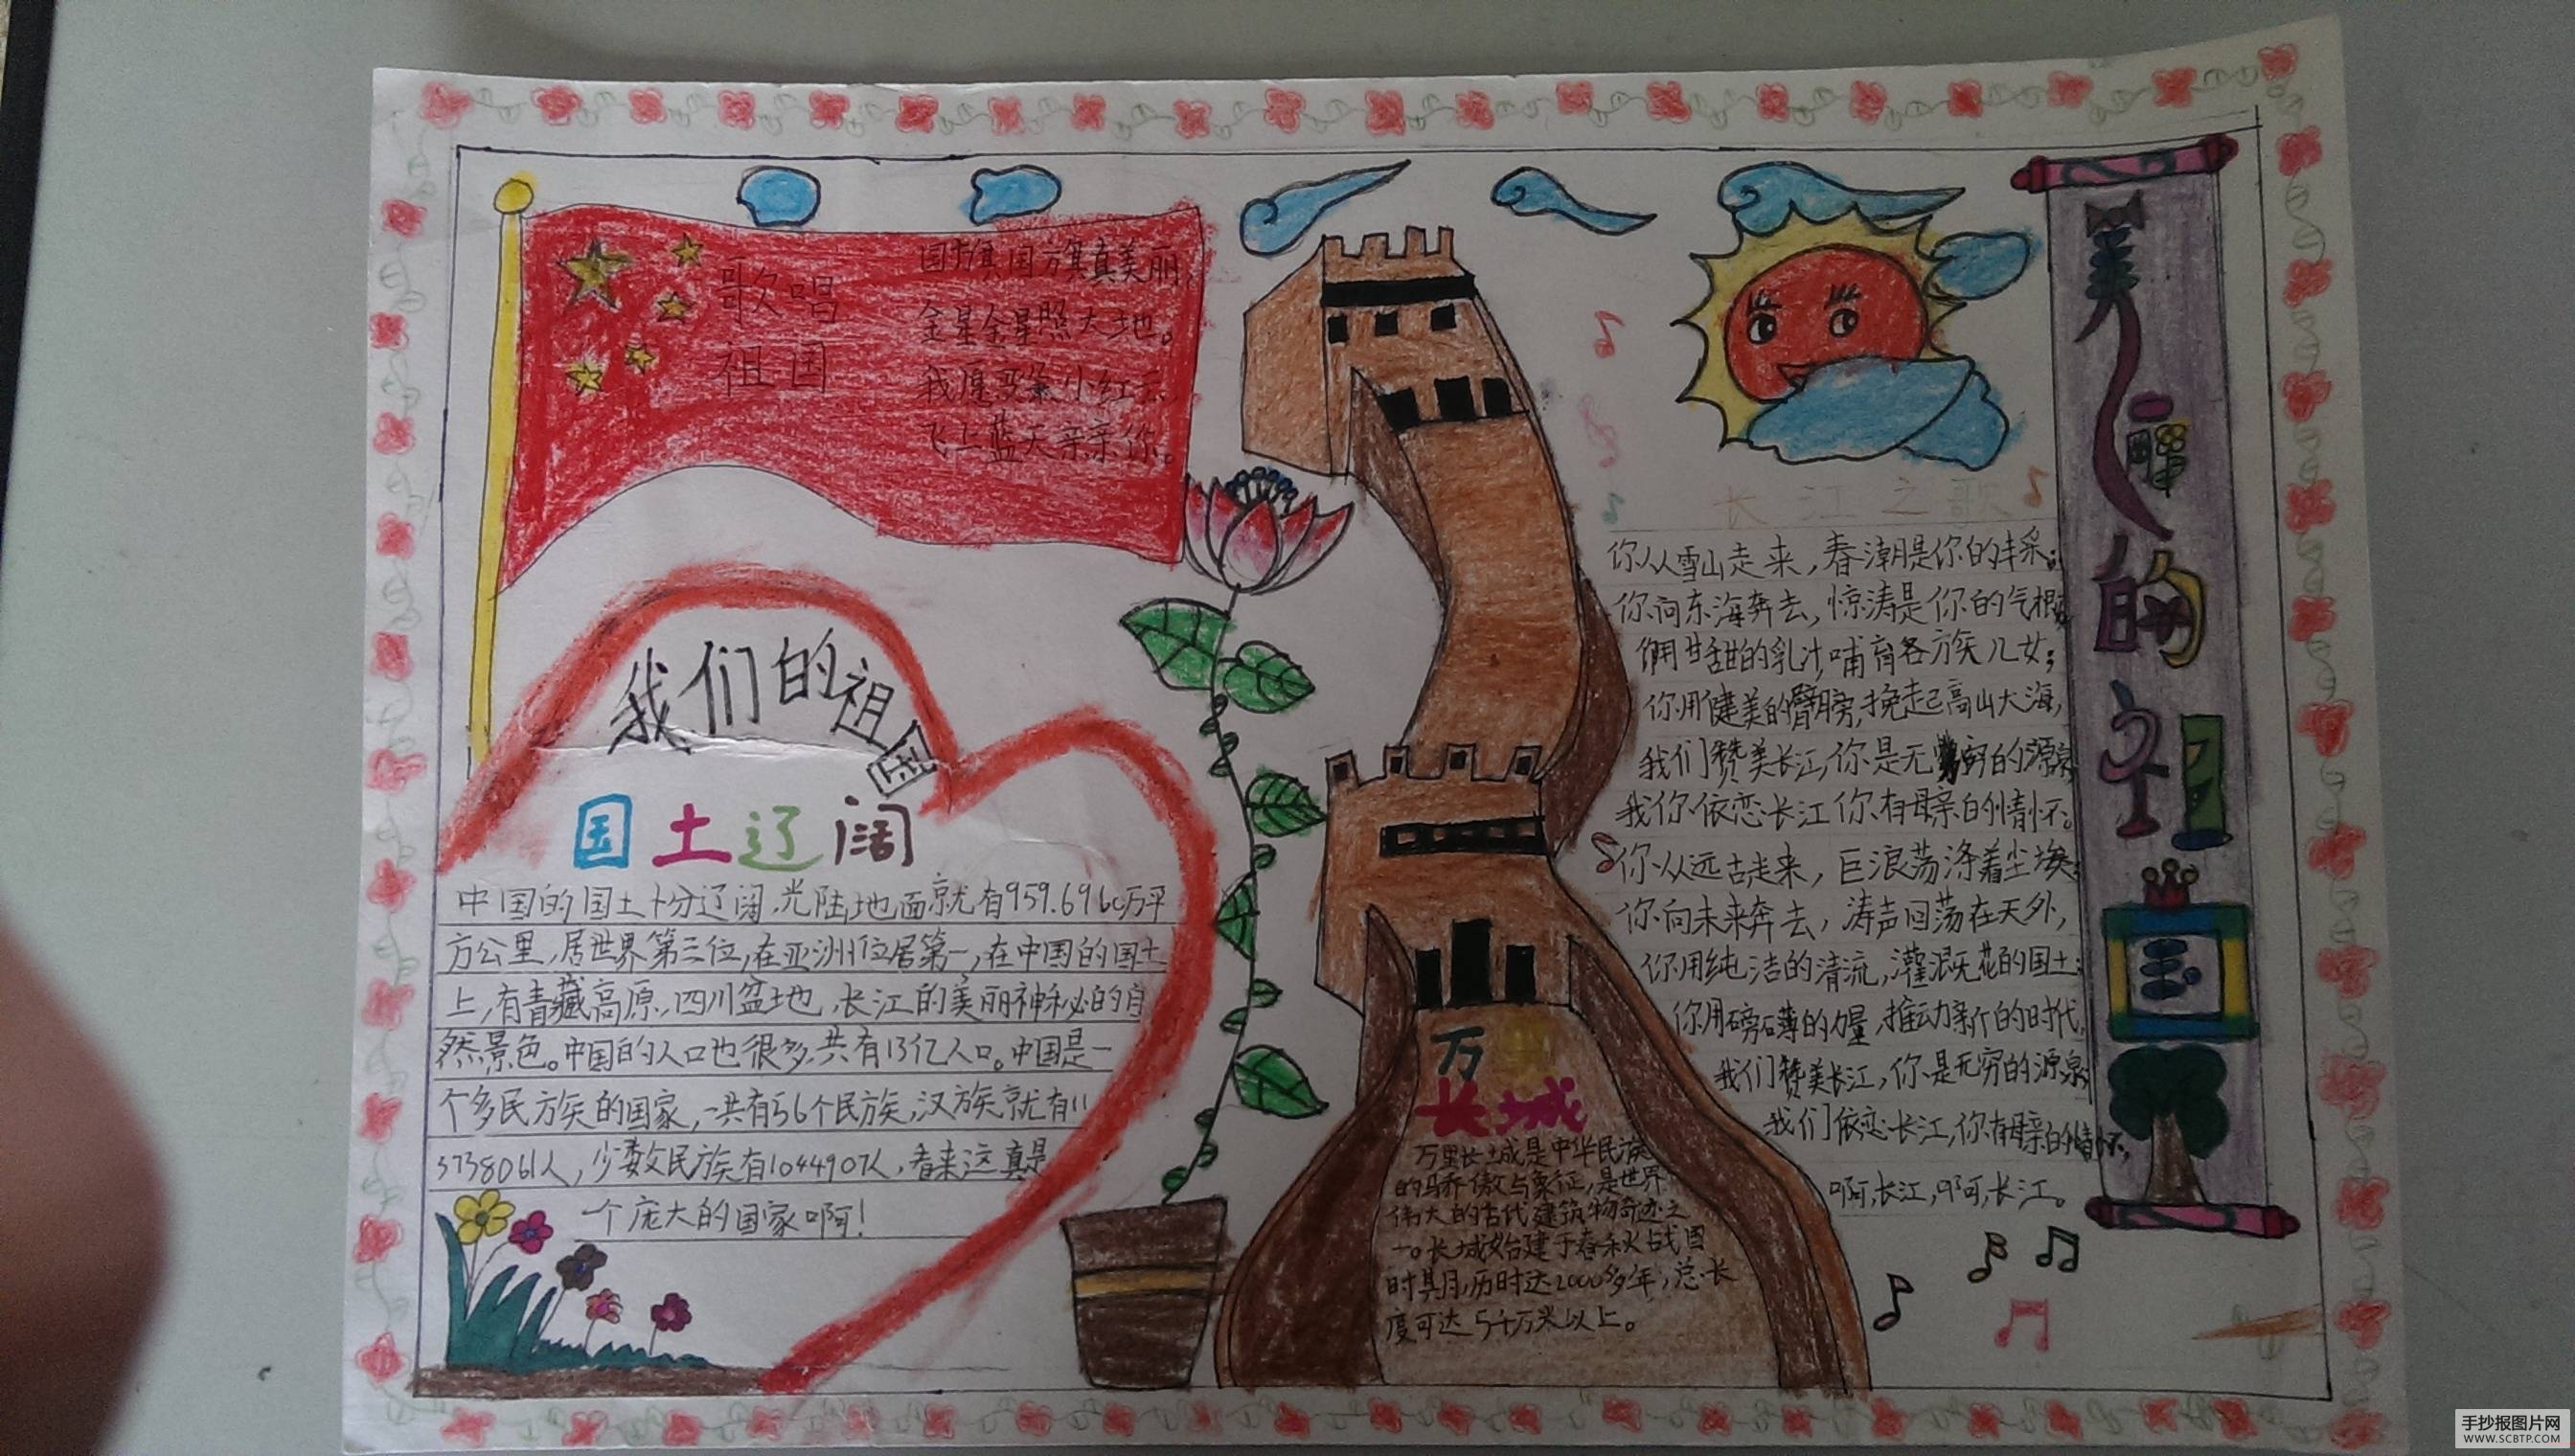 歌唱
祖国
国旗国旗真美丽,
金星金星照大地。
我愿变朵小红云
飞上蓝天亲亲你。
我们的祖国
国土辽阔
中国的国土十分辽阔,光陆地面就有959.6960万平
方公里,居世界第三位,在亚洲位居第一,在中国的国土
上,有青藏高原,四川盆地,长江的美丽神秘的自
然景色。中国的人口也很多,共有13亿人口。中国是一
个多民族的国家,一共有56个民族,汉族就有11
3738061人,少数民族有1044907人,看来这真是
一个庞大的国家啊!
万里
长城
万里长城是中华民族
的骄傲与象征,是世界
伟大的古代建筑物奇迹之
一。长城始建于春秋战国
时其月,历时达2000多年,总长
度可达5千万米以上。
长江之歌
你从雪山走来,春潮是你的丰采;
你向东海奔去,惊涛是你的气概
你用甘甜的乳汁,哺育各方族儿女;
你用健美的臂膀,挽起高山大海,
我们赞美长江,你是无穷的源泉
我你依恋长江你有母亲的情怀。
你从远古走来,巨浪荡涤着尘埃;
你向未来奔去,涛声回荡在天外,
你用纯洁的清流,灌溉花的国土;
你用磅礴的力量,推动新的时代,
我们赞美长江,你是无穷的源泉
我们依恋长江,你有母亲的情怀,
啊,长江,啊,长江。
美丽的祖国
手抄报图片网
WWW.SCBTP.COM